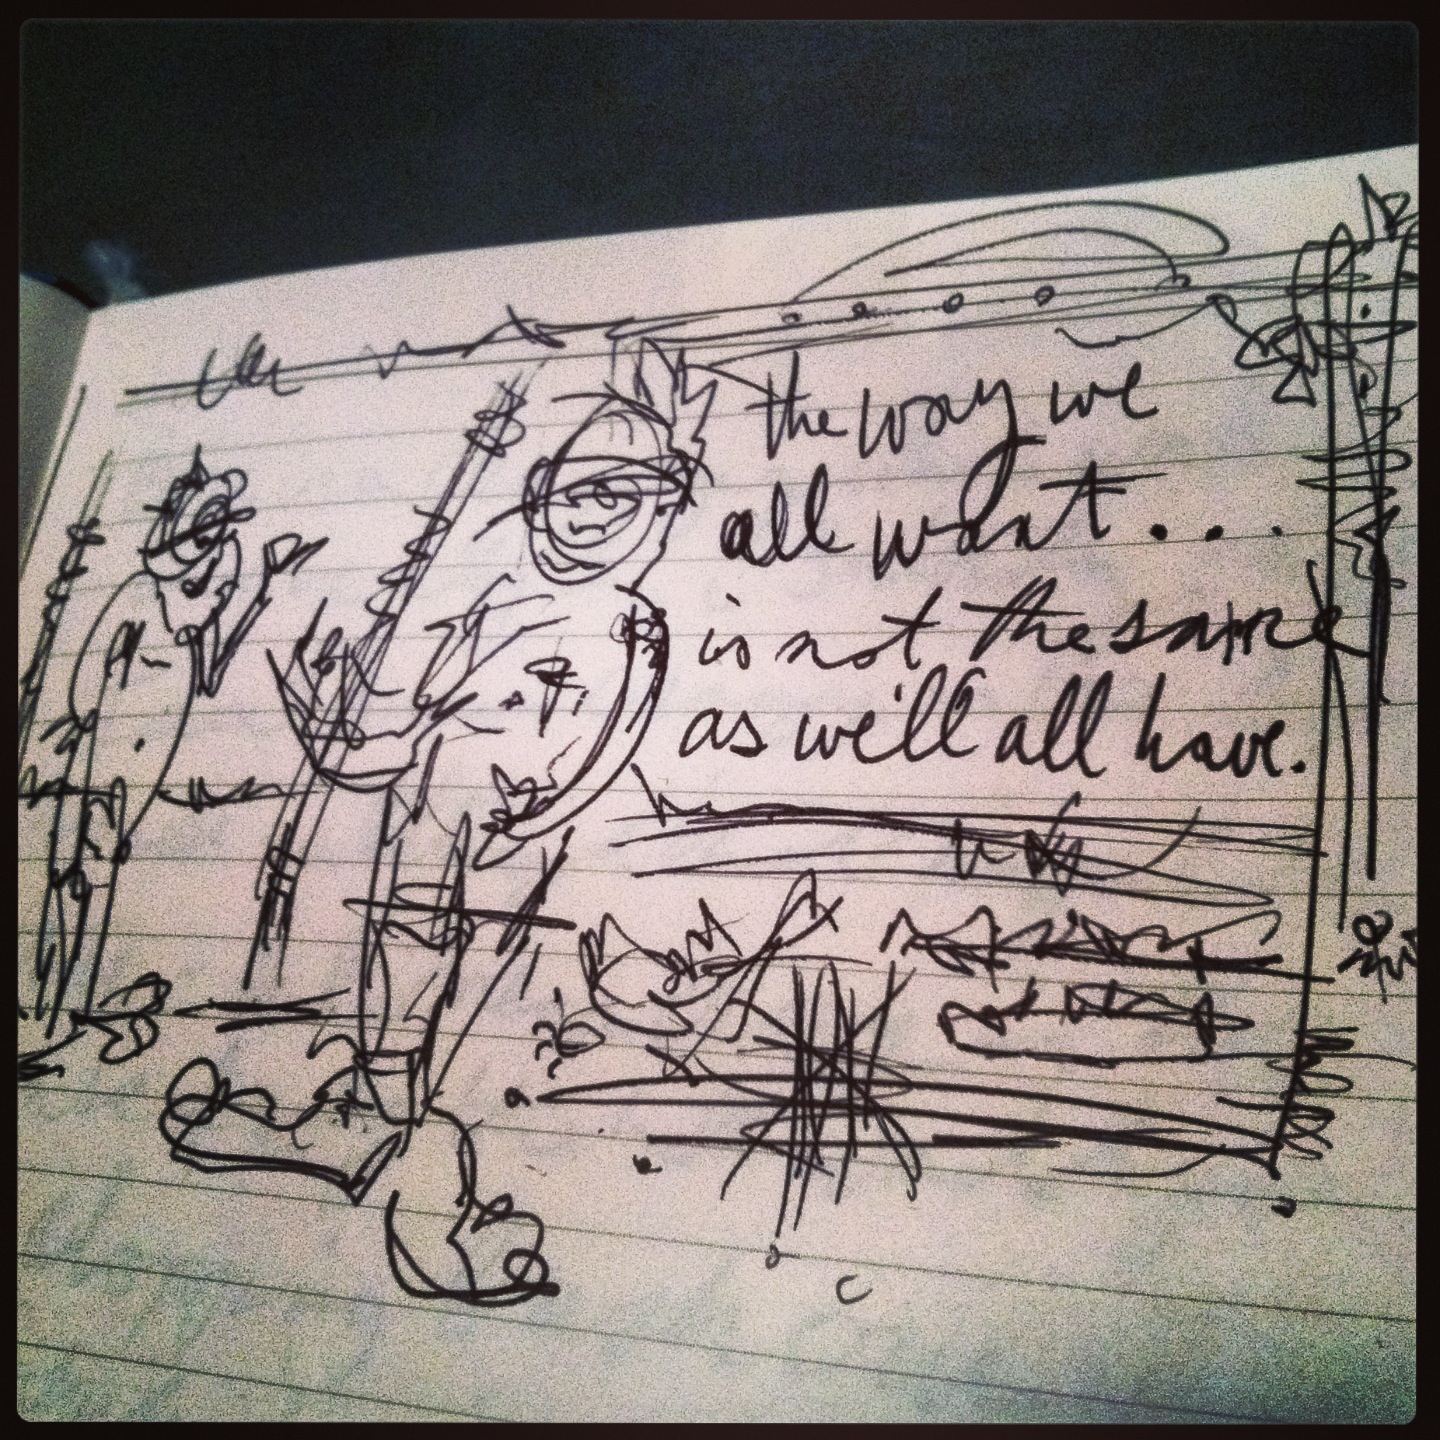 the way we
all want...
is not the same
as we'll all have.